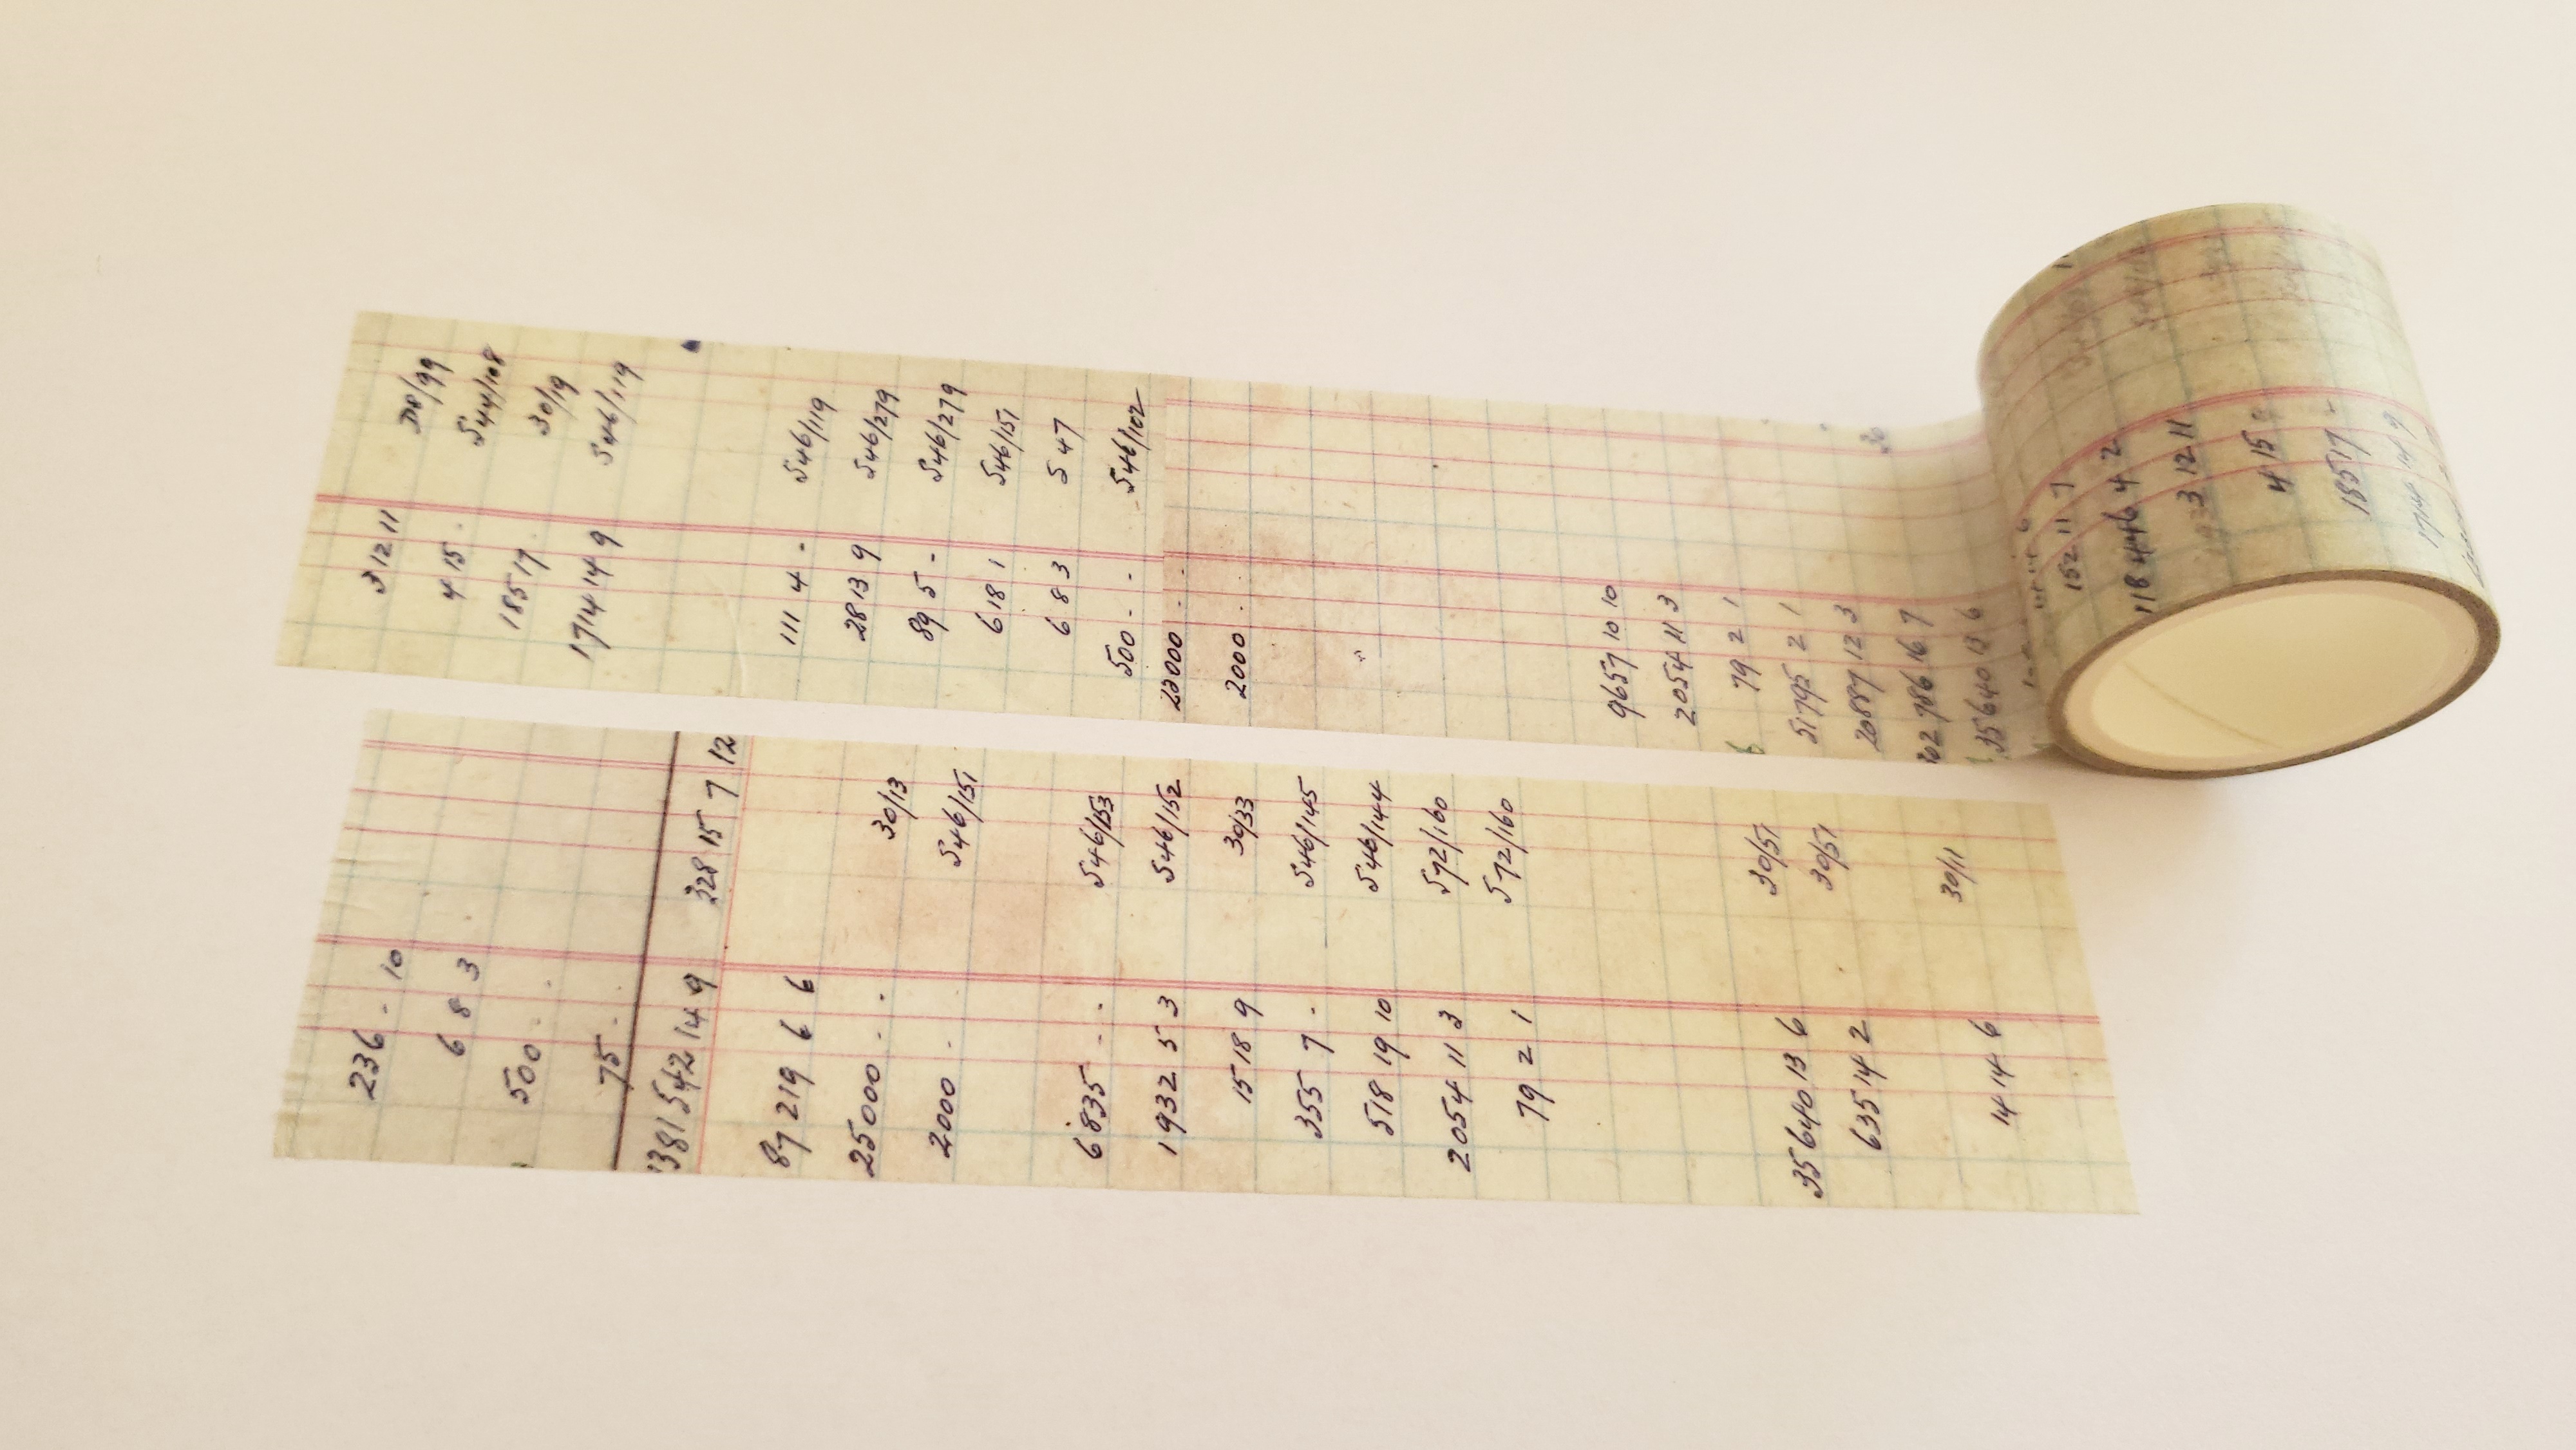 3 12 11 D8/99
4 15 . 544/108
185 17 . 30/19
1714 14 9 546/119
111 4 - 546/119
28 13 9 546/279
89 5 - 546/279
6 18 1 546/151
6 8 3 547
500 - - 546/102
2000 . .
9657 10 10
2054 11 3
79 2 1
51795 2 1
20887 12 3
202786 16 7
35640 13 6
152 11 7
118446 4 2
3 12 11
4 15
185 17 -
1714 14 9
236 - 10
6 8 3
500 . .
75 . .
381542 14 9 328 15 7 12
87219 6 6
25000 - - 30/13
2000 - . 546/151
6835 - - 546/153
1932 5 3 546/152
15 18 9 30/33
355 7 - 546/145
518 19 10 546/144
2054 11 3 572/160
79 2 1 572/160
35640 13 6 30/51
635 14 2 30/51
14 14 6 30/11